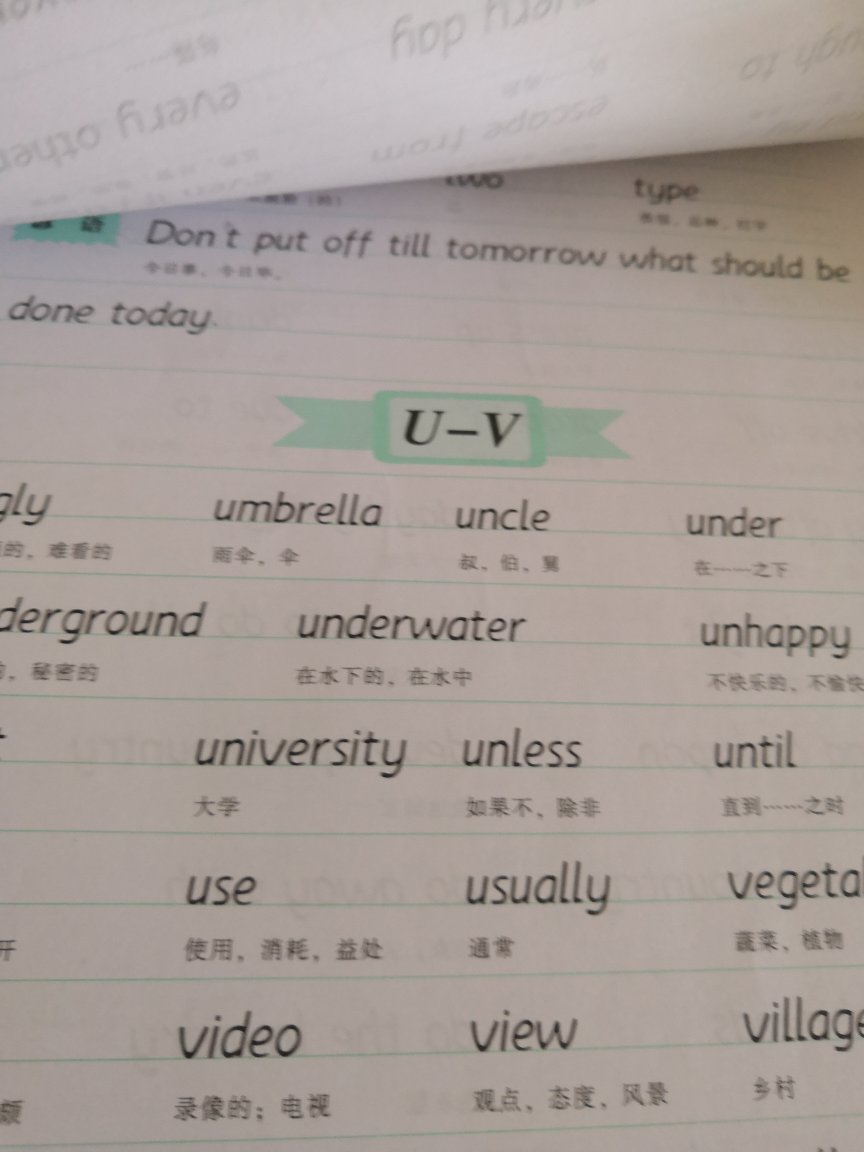 two type
谚语 Don't put off till tomorrow what should be
今日事，今日毕。
done today.
U–V
gly umbrella uncle under
的，难看的 雨伞，伞 叔，伯，舅 在……之下
derground underwater unhappy
，秘密的 在水下的，在水中 不快乐的，不愉快
university unless until
大学 如果不，除非 直到……之时
use usually vegeta
开 使用，消耗，益处 通常 蔬菜，植物
video view village
录像的；电视 观点，态度，风景 乡村